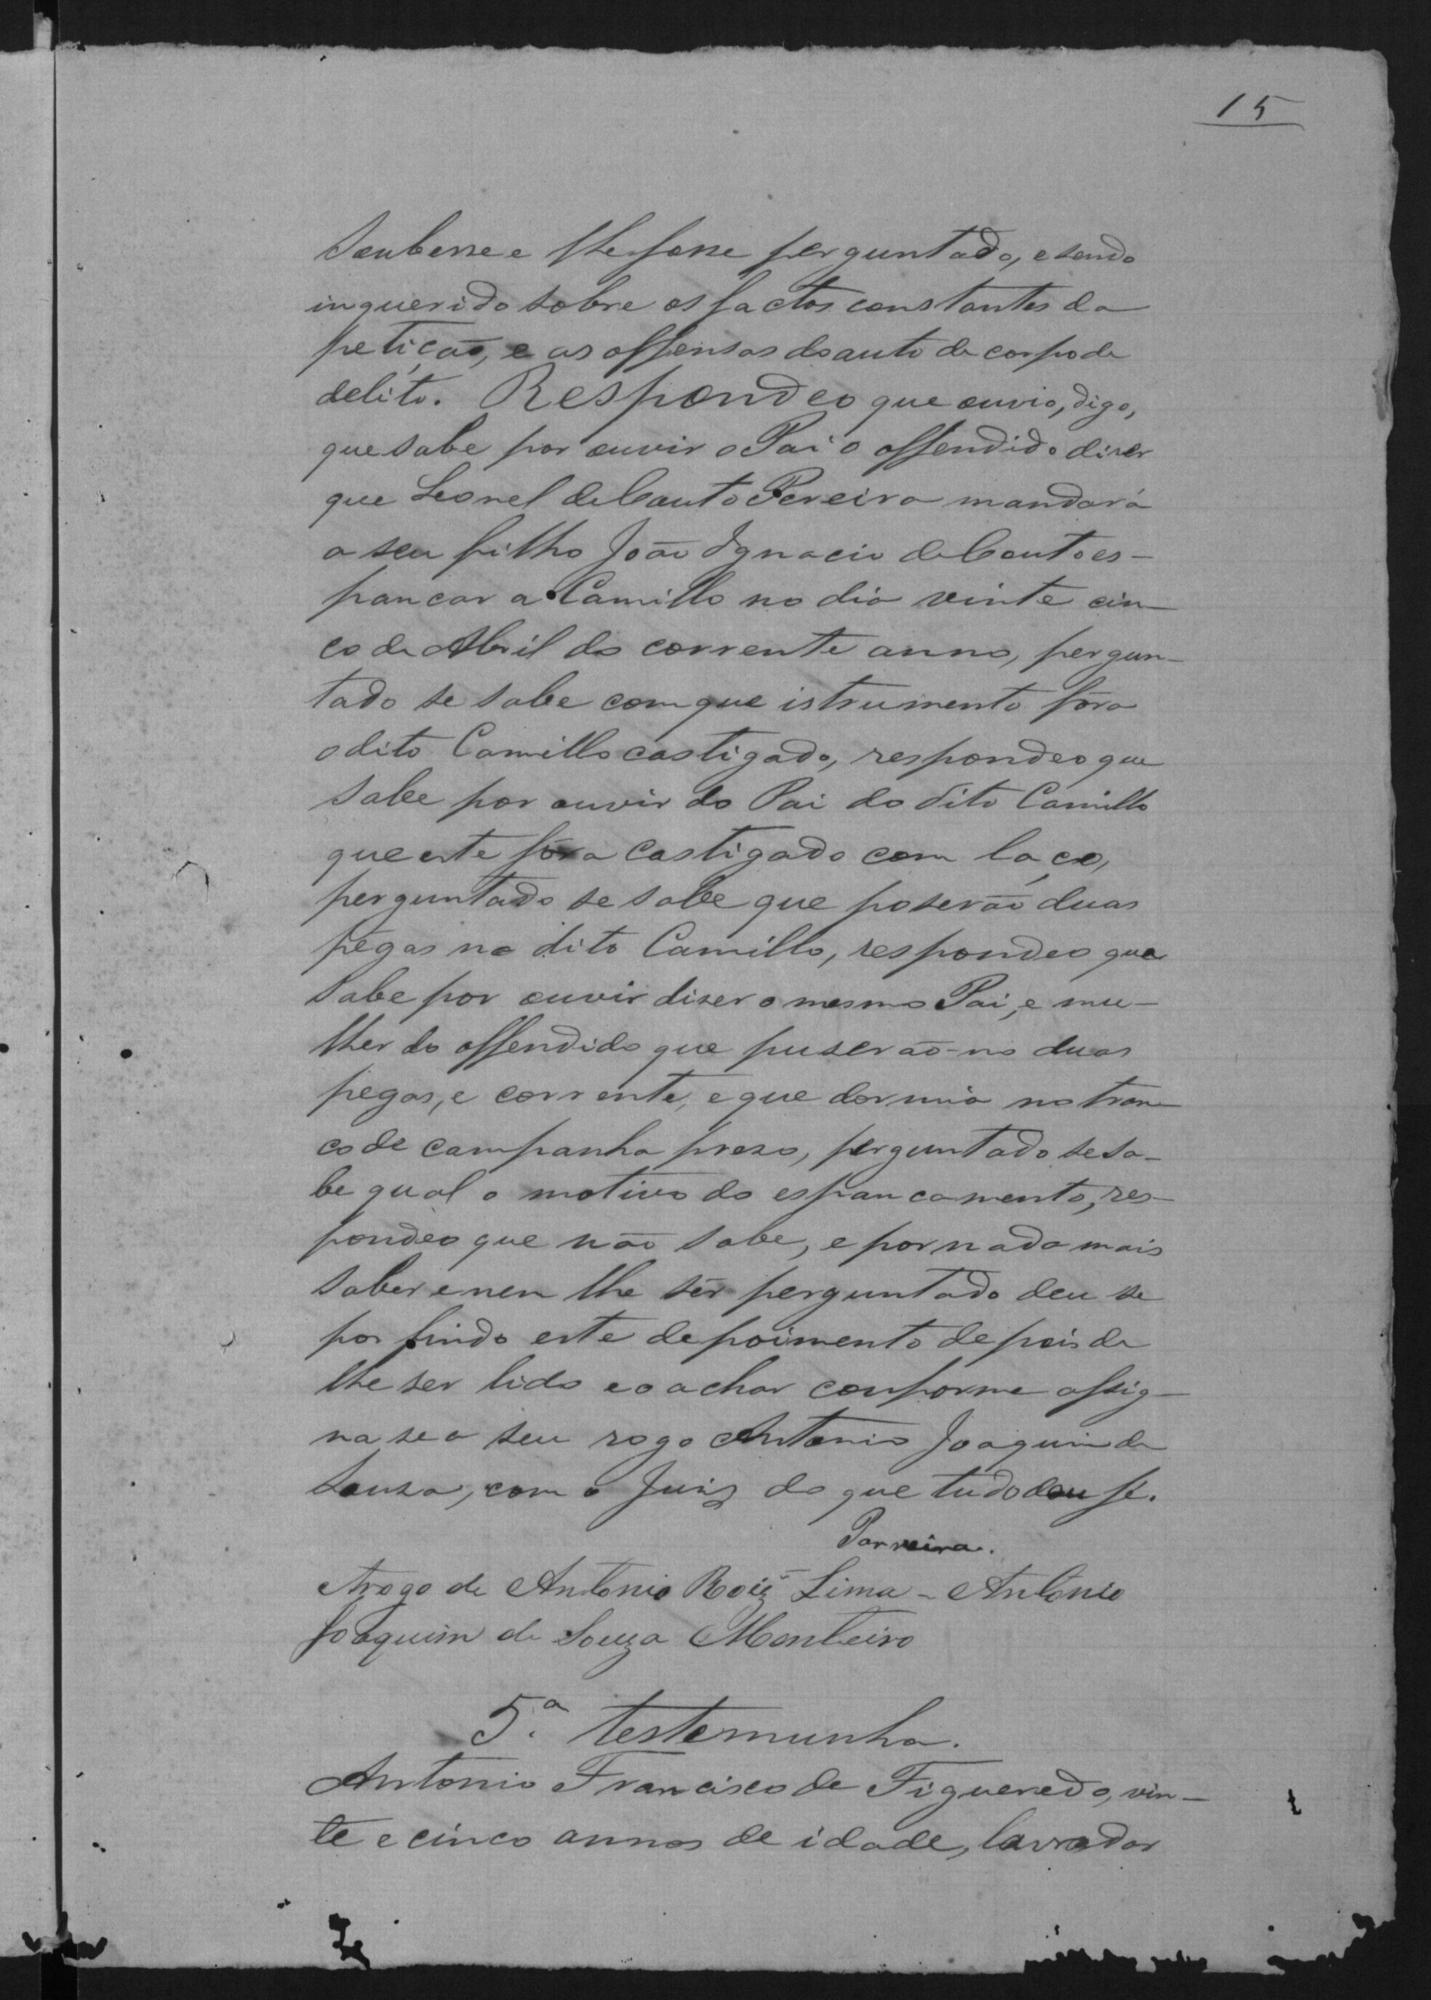 15
Soubesse e lhe fosse perguntado, e sendo
inquerido sobre os factos constantes da
petição, e as offensas do auto de corpo de
delito. Respondeo que ouvio, digo,
que sabe por ouvir o Pai o offendido diser
que Leonel de Couto Pereira mandará
a seu filho João Ignacio de Couto es-
pancar a Camillo no dia vinte cin-
co de Abril do corrente anno, pergun-
tado se sabe com que istrumento fôra
o dito Camillo castigado, respondeo que
sabe por ouvir do Pai do dito Camillo
que este fôra castigado com laço,
perguntado se sabe que poserão duas
pêgas no dito Camillo, respondeo que
sabe por ouvir diser o mesmo Pai, e mu-
lher do offendido que puserão-no duas
pegas, e corrente, e que dormia no tron-
co de campanha preso, perguntado se sa-
be qual o motivo do espancamento, res-
pondeo que não sabe, e por nada mais
saber e nem lhe sêr perguntado deu se
por findo este depoimento depois de
lhe ser lido e o achar conforme assig-
na se a seu rogo Antonio Joaquim de
Souza, com o Juiz do que tudo dou fé.
Parreira.
Arogo de Antonio Roiz Lima - Antonio
Joaquim de Souza Monteiro
5.ª testemunha.
Antonio Francisco de Figueredo, vin-
te e cinco annos de idade, lavrador